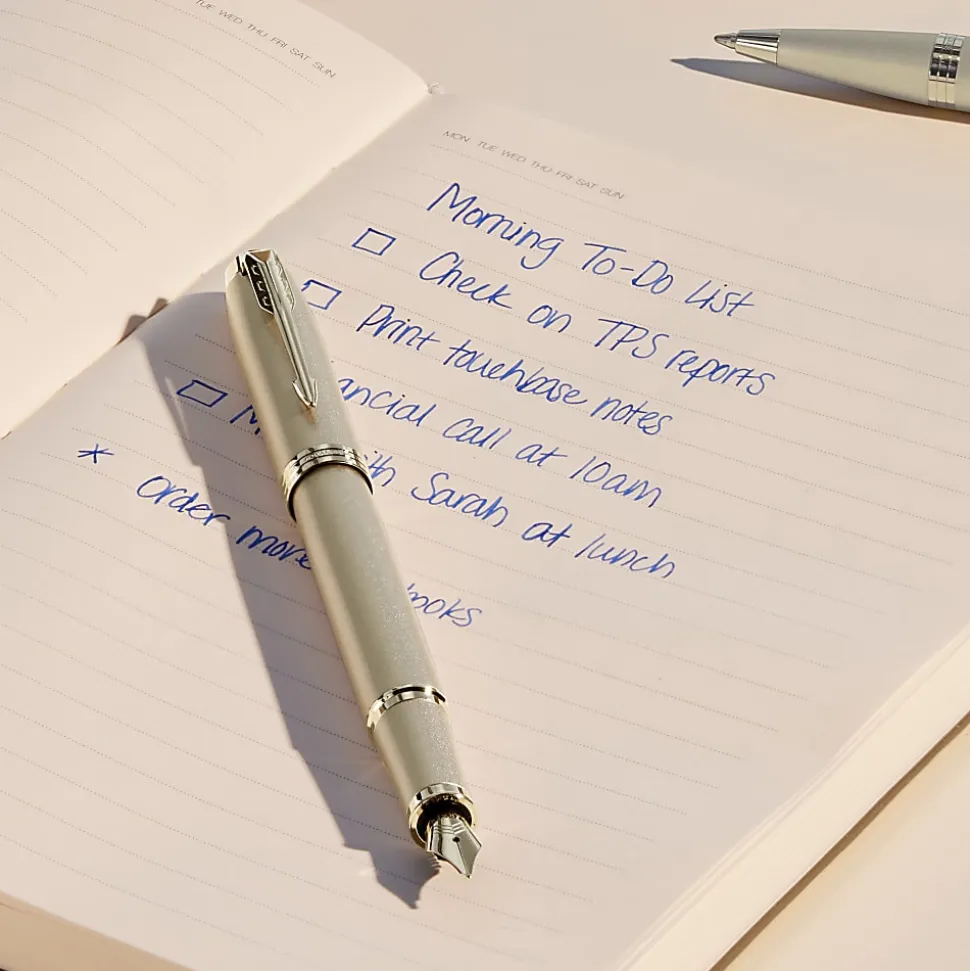 TUE WED THU FRI SAT SUN
MON TUE WED THU FRI SAT SUN
Morning To-Do List
Check on TPS reports
Print touchbase notes
call at 10am
Sarah at lunch
* Order more